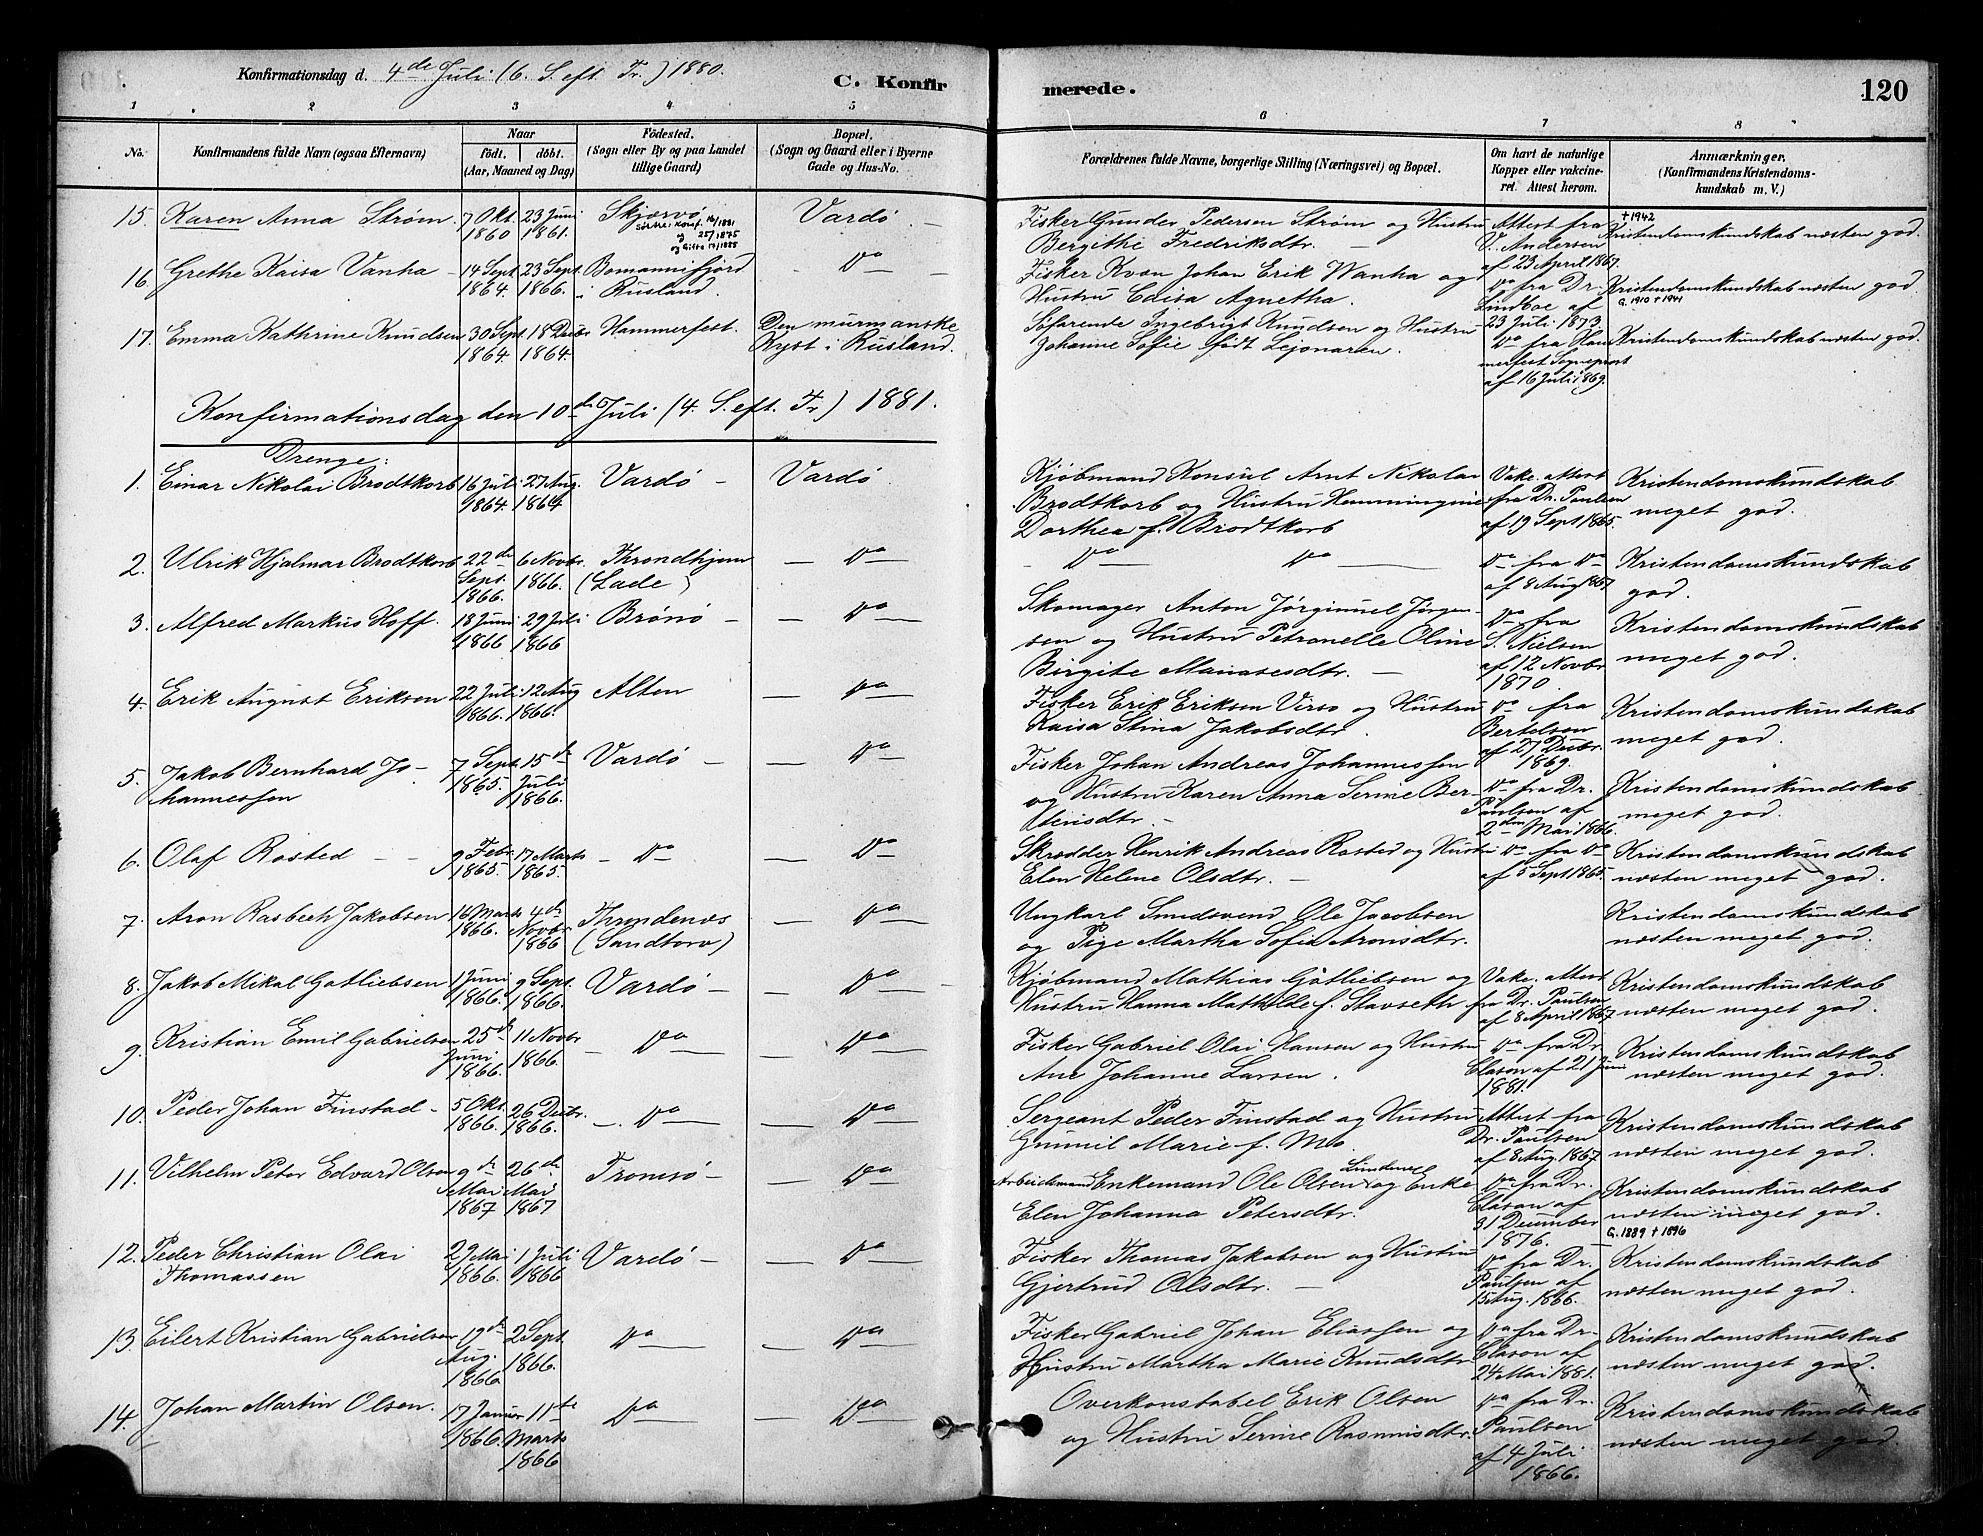 Konfirmationsdag d. 4de Juli (6. S. eft. Tr.) 1880.
C. Konfirmerede.
120
1 2 3 4 5 6 7 8
No.
Konfirmandens fulde Navn (ogsaa Efternavn)
Naar
födt. döbt.
(Aar, Maaned og Dag)
Födested.
(Sogn eller By og paa Landet
tillige Gaard)
Bopæl.
(Sogn og Gaard eller i Byerne
Gade og Hus-No.
Forældrenes fulde Navne, borgerlige Stilling (Næringsvei) og Bopæl.
Om havt de naturlige
Kopper eller vakcine-
ret. Attest herom.
Anmærkninger.
(Konfirmandens Kristendoms-
kundskab m. V.)
15. Karen Anna Strøm
7 Okt. 1860
23 Juni 1861.
Skjærvø
og 25/1875
Vardø
Fisker Gunder Pedersen Strøm og Hustru
Bergithe Fredriksdtr.
Attest fra
V. Andersen
af 23 April 1867.
+ 1942
Kristendomskundskab næsten god.
16. Grethe Kaisa Vanha
14 Sept. 1864.
23 Sept. 1866.
Bomannifjord
i Rusland.
Do
Fisker Kvæn Johan Erik Wanha og
Hustru Caisa Agnetha.
Do fra Dr.
Lindboe af
23 Juli 1873
Kristendomskundskab næsten god
G. 1910 + 1941
17. Emma Kathrine Knudsen
30 Sept. 1864.
18 Decbr 1864.
Hammerfest.
Den murmanske
Kyst i Rusland.
Søfarende Ingebrigt Knudsen og Hustru
Johanne Sofie født Lejonaren.
Do fra Ham
merfest Sogneprest
af 16 Juli 1869.
Kristendomskundskab næsten god
Konfirmationsdag den 10de Juli (4. S. eft. Tr.) 1881.
Drenge:
1. Einar Nikolai Brodtkorb
16 Juli 1864.
27 Aug. 1864
Vardø
Vardø
Kjøbmand Konsul Arnt Nikolai
Brodtkorb og Hustru Hemmingine
Dorthea f. Brodtkorb
Vakc. attest
fra Dr. Paulsen
af 19 Sept 1865.
Kristendomskundskab
meget god.
2. Ulrik Hjalmar Brodtkorb
22de Sept. 1866.
6 Novbr. 1866.
Throndhjem
(Lade)
Do
Do Do
Do fra Do
af 8 Aug 1867
Kristendomskundskab
god.
3. Alfred Markus Hoff.
18 Juni 1866
29 Juli 1866
Brønø
Do
Skomager Anton Jørginuel Jørgen-
sen og Hustru Petronelle Oline
Birgite Manasesdtr.
Do fra
S. Nielsen
af 12 Novbr
1870.
Kristendomskundskab
meget god.
4. Erik August Erikson
22 Juli 1866.
12 Aug 1866.
Alten
Do
Fisker Erik Erikson Virso og Hustru
Kaisa Stina Jakobsdtr.
Do fra
Bertelsen
af 27 Decbr.
1869.
Kristendomskundskab
meget god.
5. Jakob Bernhard Jo-
hannessen
7 Sept. 1865.
15de Juli 1866.
Vardø
Do
Fisker Johan Andreas Johannessen
og Hustru Karen Anna Serine Ber-
tinsdtr.
Do fra Dr.
Paulsen af
2den Mai 1866.
Kristendomskundskab
meget god.
6. Olaf Rosted
9 Febr. 1865.
17 Marts 1865.
Do
Do
Skrædder Henrik Andreas Rosted og Hustru
Elen Helene Olsdtr.
Do fra Do
af 5 Sept 1865.
Kristendomskundskab
næsten meget god.
7. Aron Rasbech Jakobsen
16 Marts 1866.
4de Novbr. 1866
Throndenæs
(Sandtorv)
Do
Ungkarl Smedsvend Ole Jacobsen
og Pige Martha Sofie Aronsdtr.
Kristendomskundskab
næsten meget god.
8. Jakob Mikal Gotliebsen
1 Juni 1866.
9 Sept. 1866.
Vardø
Do
Kjøbmand Mathias Gotliebsen og
Hustru Hanna Mathilde f. Stavseth
Vakc. attest
fra Dr. Paulsen
af 8 April 1867
Kristendomskundskab
næsten meget god.
9. Kristian Emil Gabrielsen
25de Juni 1866.
11 Novbr 1866.
Do
Do
Fisker Gabriel Olai Hansen og Hustru
Ane Johanne Larsen.
Do fra Dr.
Clason af 21 Juni
1881.
Kristendomskundskab
næsten meget god.
10. Peder Johan Finstad
5 Okt. 1866.
26 Decbr. 1866.
Do
Do
Sergeant Peder Finstad og Hustru
Gunnil Marie f. Mo.
Attest fra
Dr. Paulsen
af 8 Aug. 1867
Kristendomskundskab
næsten meget god.
11. Vilhelm Peter Edvard Olsen
9de Mai 1867
26de Mai 1867
Tromsø
Do
Arbeidsmand Enkemand Ole Olsen og Enke
Elen Johanna Petersdtr.
Do fra Dr.
Clason af
31 December
1876.
Kristendomskundskab
næsten meget god.
12. Peder Christian Olai
Thomassen
29 Mai 1866.
1 Juli 1866
Vardø
Do
Fisker Thomas Jakobsen og Hustru
Gjertrud Olsdtr.
Do fra Dr.
Paulsen af
15 Aug. 1866.
G. 1889 + 1896
Kristendomskundskab
næsten meget god.
13. Eilert Kristian Gabrielsen
19de Aug. 1866
2 Sept. 1866.
Do
Do
Fisker Gabriel Johan Eliassen og
Hustru Martha Marie Knudsdtr.
Do fra Dr.
Clason af
24 Mai 1881.
Kristendomskundskab
næsten meget god.
14. Johan Martin Olsen.
17 Januar 1866.
11te Marts 1866
Do
Do
Overkonstabel Erik Olsen
og Hustru Serine Rasmusdtr.
Do fra Dr.
Paulsen
af 4 Juli
1866.
Kristendomskundskab
næsten meget god.